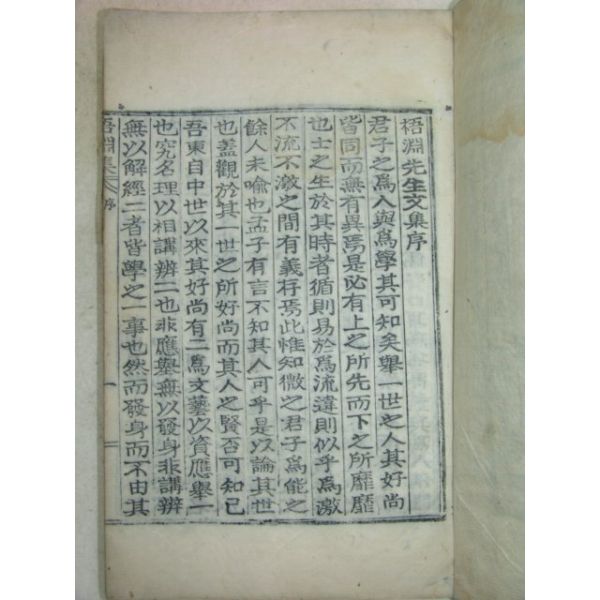 梧淵先生文集序
君子之爲人與爲學其可知矣舉一世之人其好尚
皆同而無有異焉是必有上之所先而下之所靡靡
也士之生於其時者循則易於爲流違則似乎爲激
不流不激之間有義存焉此惟知微之君子爲能之
餘人未喩也孟子有言不知其人可乎是以論其世
也盖觀於其一世之所好尚而其人之賢否可知已
吾東自中世以來其好尚有二爲文藝以資應舉一
也究名理以相講辨二也非應擧無以發身非講辨
無以解經二者皆學之一事也然而發身而不由其
梧淵集 序 一